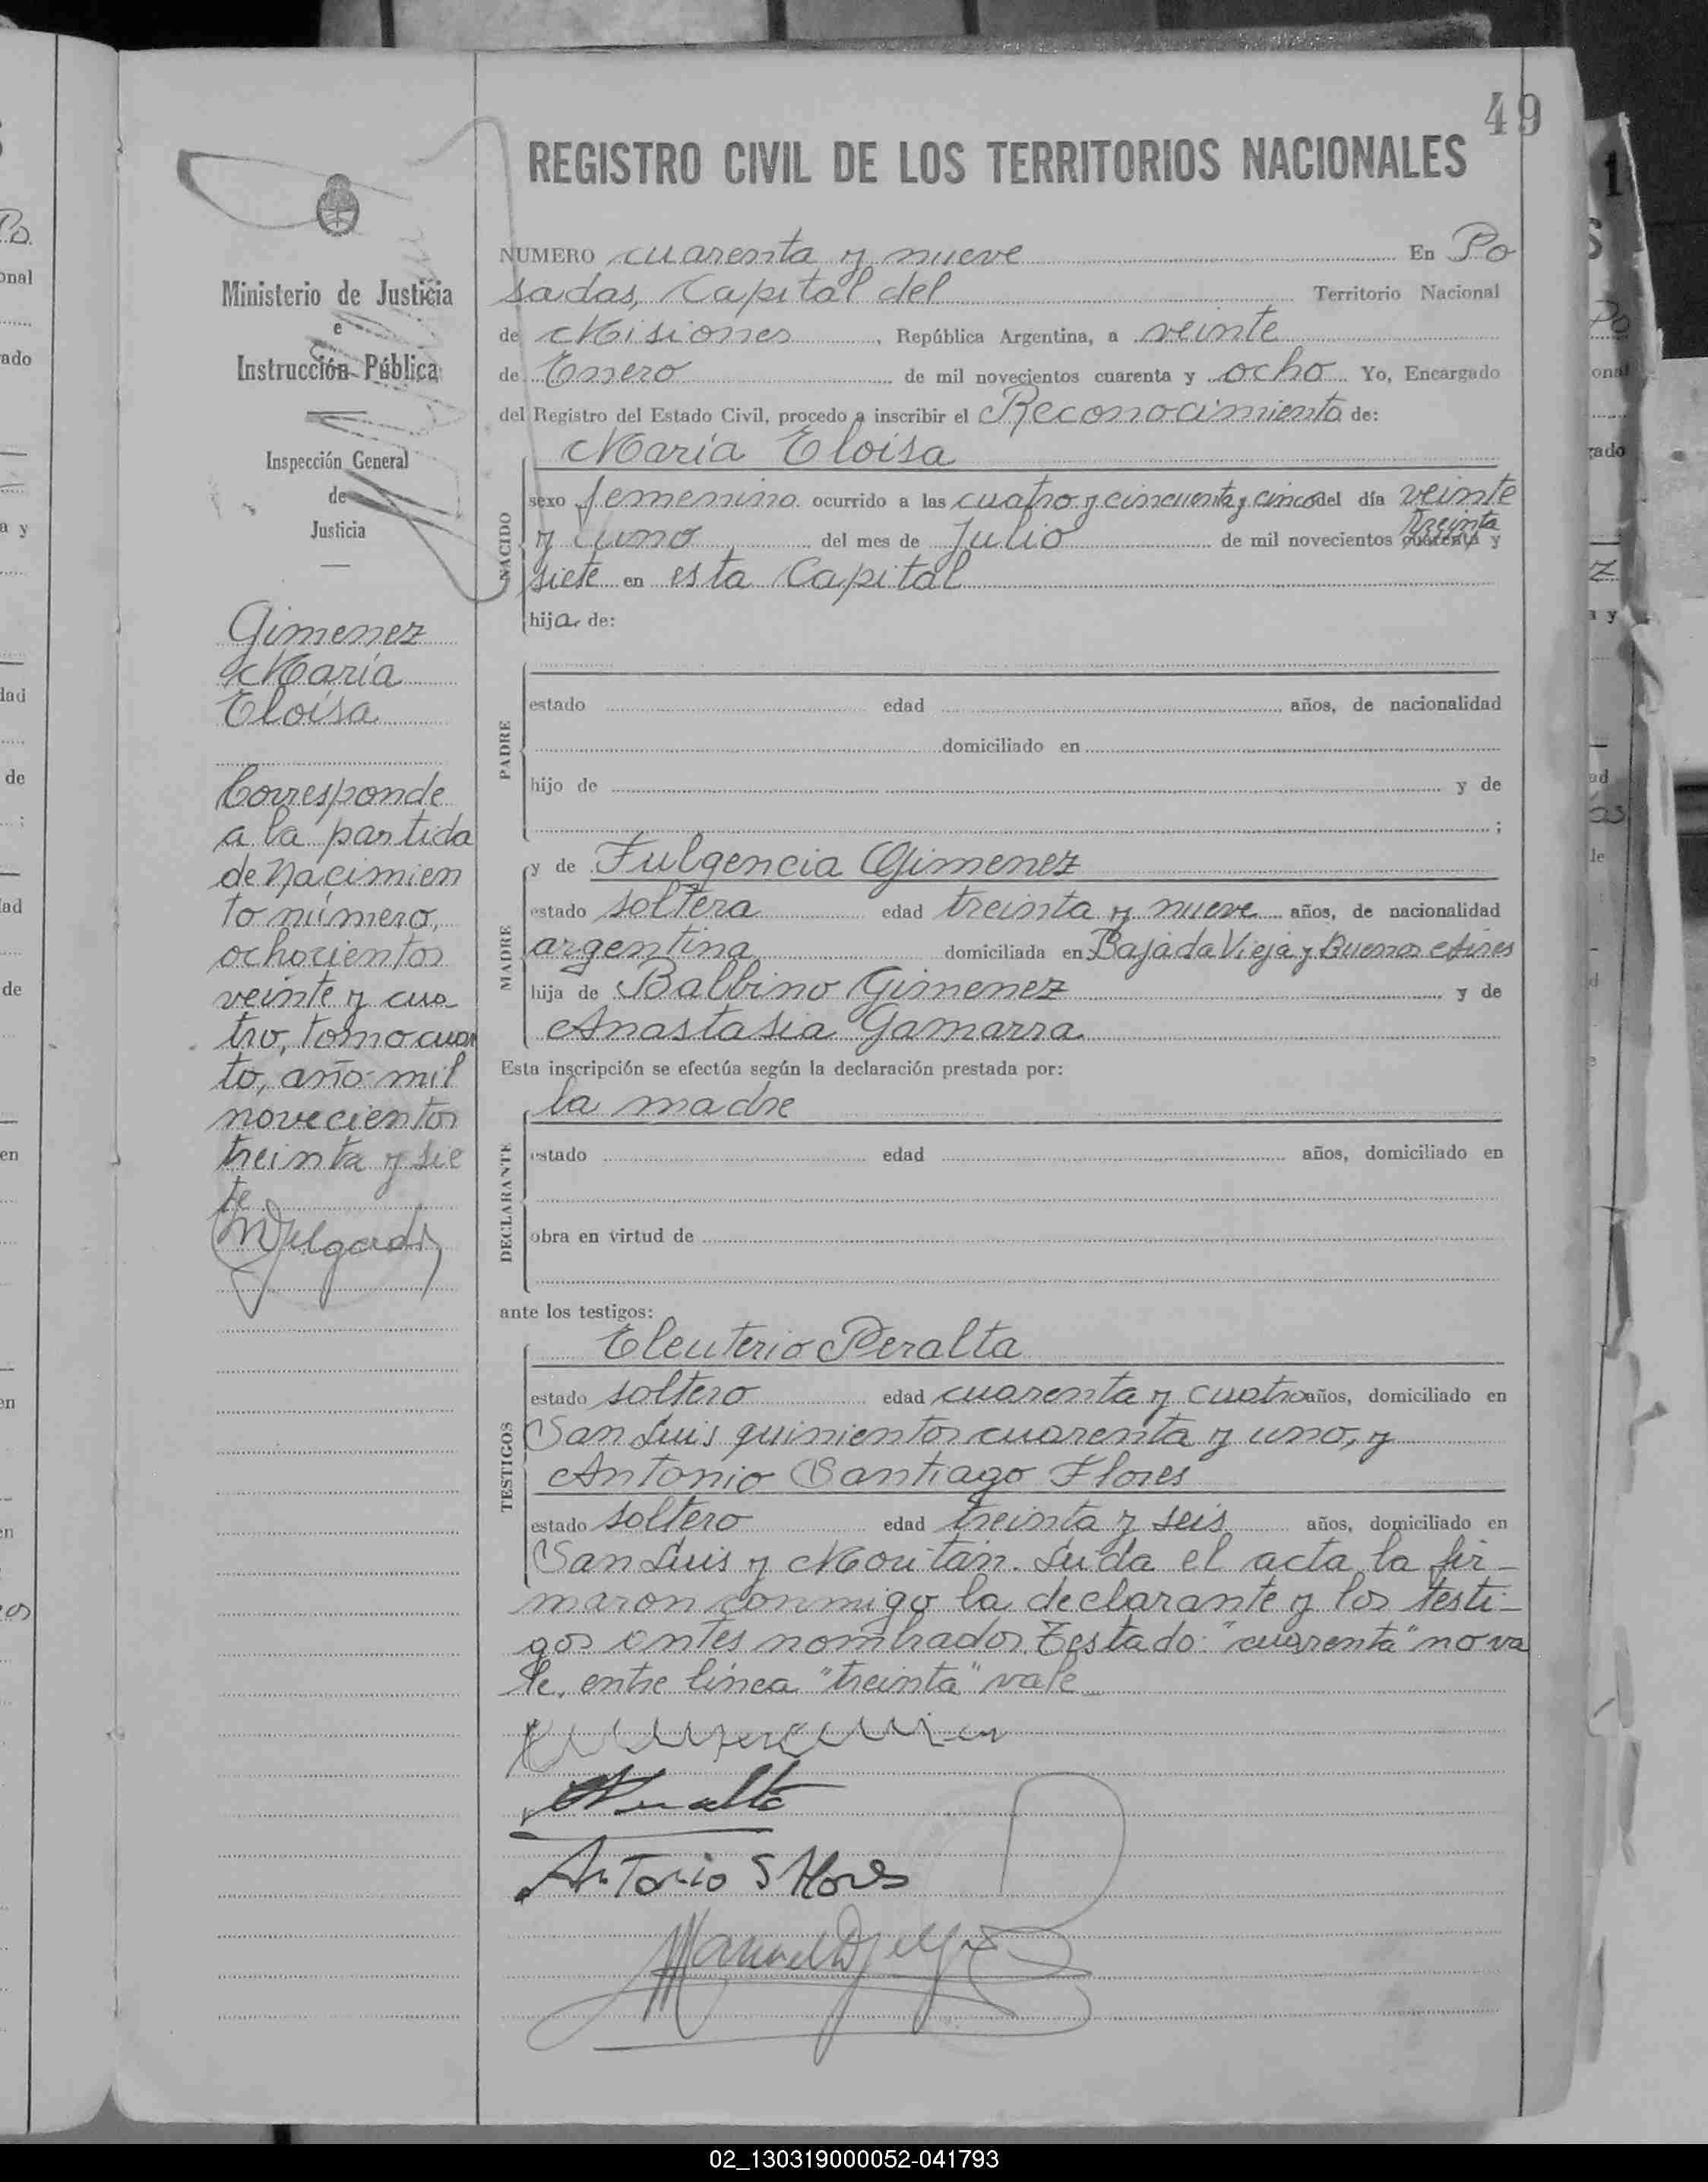 49
REGISTRO CIVIL DE LOS TERRITORIOS NACIONALES
Ministerio de Justicia
e
Instrucción Pública
Inspección General
de
Justicia
Gimenez
Maria
Eloisa
Corresponde
a la partida
de nacimien
to número,
ochocientos
veinte y cua
tro, tomo cuar
to, año mil
novecientos
treinta y sie
te
NUMERO cuarenta y nueve En Po
sadas, Capital del Territorio Nacional
de Misiones, República Argentina, a veinte
de Enero de mil novecientos cuarenta y ocho Yo, Encargado
del Registro del Estado Civil, procedo a inscribir el Reconocimiento de:
María Eloisa
NACIDO
sexo femenino ocurrido a las cuatro y cincuenta y cinco del día veinte
treinta
y uno del mes de Julio de mil novecientos cuarenta y
siete en esta Capital
hija de:
PADRE
estado edad años, de nacionalidad
domiciliado en
hijo de y de
;
MADRE
y de Fulgencia Gimenez
estado soltera edad treinta y nueve años, de nacionalidad
argentina domiciliada en Bajada Vieja y Buenos Aires
hija de Balbino Gimenez y de
Anastasia Gamarra
Esta inscripción se efectúa según la declaración prestada por:
DECLARANTE
la madre
estado edad años, domiciliado en
obra en virtud de
ante los testigos:
TESTIGOS
Eleuterio Peralta
estado soltero edad cuarenta y cuatro años, domiciliado en
San Luis quinientos cuarenta y uno, y
Antonio Santiago Flores
estado soltero edad treinta y seis años, domiciliado en
San Luis y Moritán. Leída el acta la fir-
maron conmigo la declarante y los testi-
gos antes nombrados. Testado: "cuarenta" no va
le. entre línea "treinta" vale
Peralta
Antonio S Flores
02_130319000052-041793